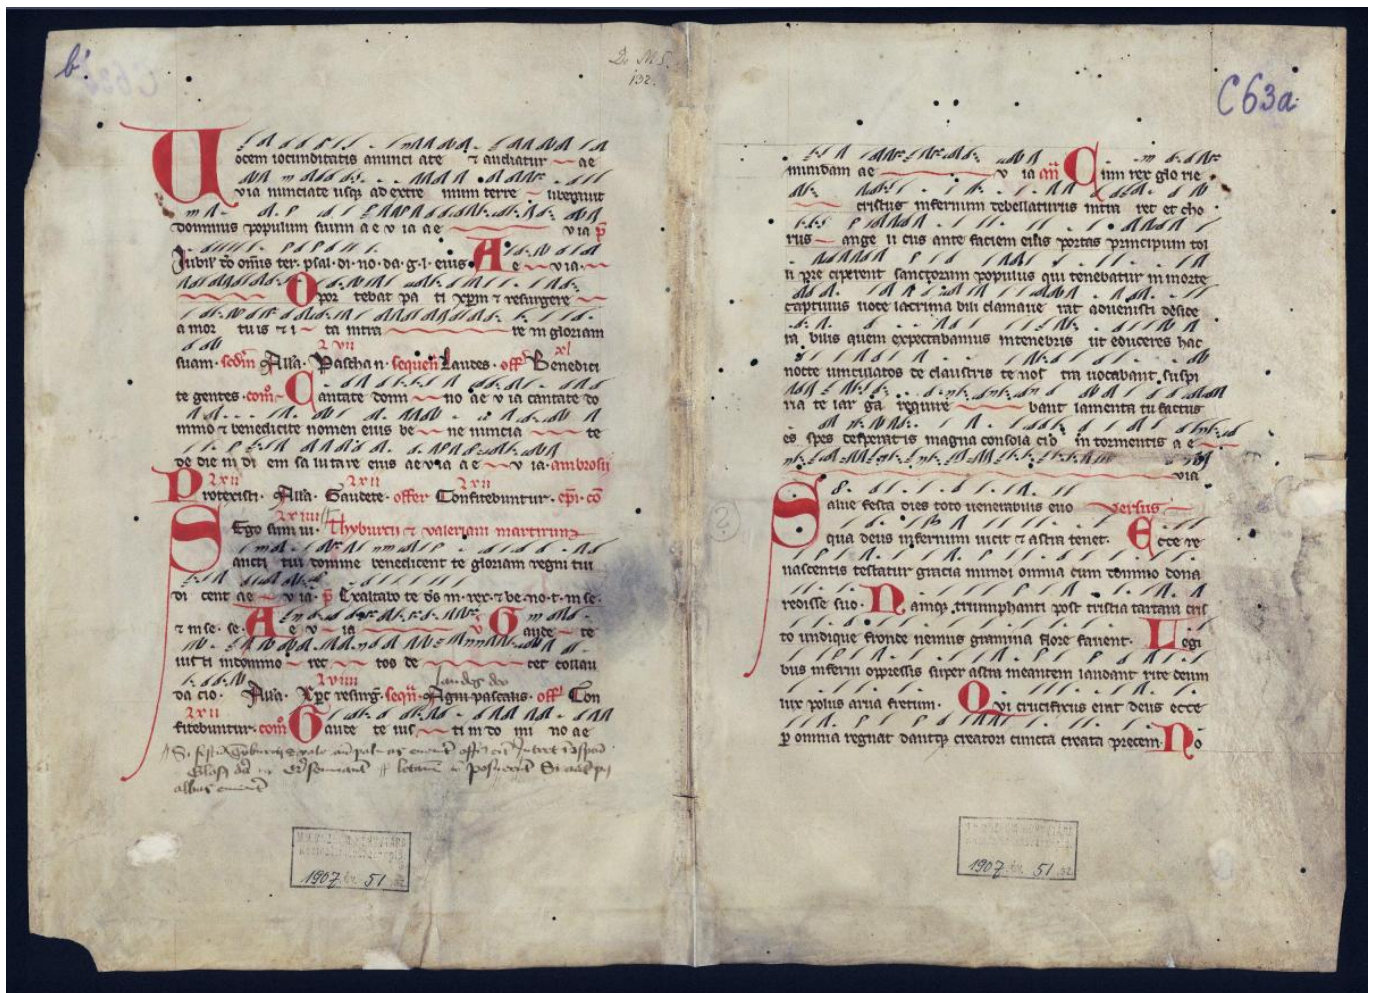 b'.
D. MS.
132.
Uocem iocunditatis anunci ate ⁊ audiatur ae
via nunciate usq; ad extre mum terre liberavit
dominus populum suum a e v ia ae via p̄
Jubil' t̄o om̄is ter. psal. di. no. da. g. l. eius. A e via.
Opor tebat pa ti xp̄m ⁊ resurgere
a mor tuis ⁊ i ta intra re in gloriam
xvii xl
suam. Alla. Pascha n. sequen̄ Laudes. off. Benedici
te gentes. com̄ Cantate domi no ae v ia cantate do
mino ⁊ benedicite nomen eius be ne nuncia te
de die in di em sa lu tare eius aevia a e v ia. ambrosii
xxii xxii xxii
Protexisti. Alla. Gaudete. offer Confitebuntur. ep̄i. cō
Ego sum ui. Thyburcii ⁊ valeriani martirum
Sancti tui domine benedicent te gloriam regni tui
di cent ae v ia. p̄ Exaltabo te d̄s m. rex ⁊ be. no. t. in se.
⁊ in se. se. A e v ia v Gaude te
iusti in domino rec tos de cet collau
laudes deo
xviiii
da cio. Alla. Xp̄c resurg. seqn̄. Agni pascalis. off. Con
xxii
fitebuntur. com̄ Gaude te ius ti in do mi no ae
albas
1907 51
C63a
mundam ae v ia añ Cum rex glo rie
cristus infernum debellaturus intra ret et cho
rus ange li cus ante faciem eius portas principum tol
li pre ciperent sanctorum populus qui tenebatur in morte
captivus voce lacrima bili clamave rat advenisti deside
ra bilis quem expectabamus in tenebris ut educeres hac
nocte vinculatos de claustris te nos tra vocabant suspi
ria te lar ga require bant lamenta tu factus
es spes desperatis magna consola cio in tormentis a e
via
Salve festa dies toto venerabilis evo versus
qua deus infernum vicit ⁊ astra tenet. Ecce re
nascentis testatur gracia mundi omnia cum domino dona
redisse suo. Namq; triumphanti post tristia tartara cris
to undique fronde nemus gramina flore favent. Legi
bus inferni oppressis super astra meantem laudant rite deum
lux polus arva fretum. Qui crucifixus erat deus ecce
p̄ omnia regnat dantq; creatori cuncta creata precem. No
1907 51